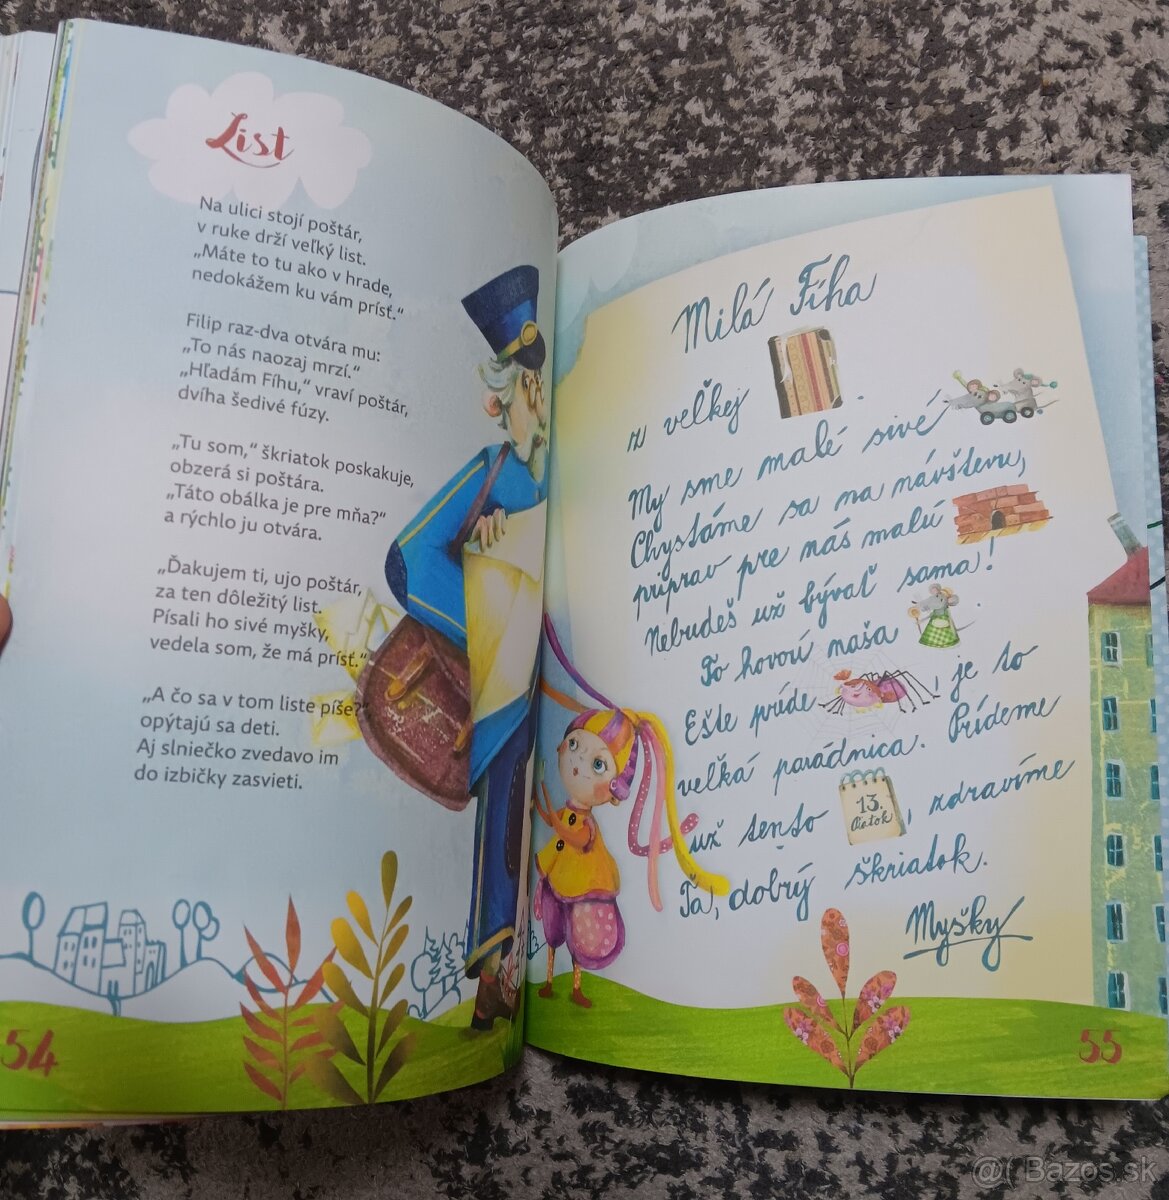 List
Na ulici stojí poštár,
v ruke drží veľký list.
„Máte to tu ako v hrade,
nedokážem ku vám prísť.“
Filip raz-dva otvára mu:
„To nás naozaj mrzí.“
„Hľadám Fíhu,“ vraví poštár,
dvíha šedivé fúzy.
„Tu som,“ škriatok poskakuje,
obzerá si poštára.
„Táto obálka je pre mňa?“
a rýchlo ju otvára.
„Ďakujem ti, ujo poštár,
za ten dôležitý list.
Písali ho sivé myšky,
vedela som, že má prísť.“
„A čo sa v tom liste píše?“
opýtajú sa deti.
Aj slniečko zvedavo im
do izbičky zasvieti.
54
Milá Fíha
z veľkej .
My sme malé sivé
Chystáme sa na návštevu,
priprav pre nás malú
Nebudeš už bývať sama!
To hovorí naša
Ešte príde , je to
veľká parádnica. Prídeme
už tento 13. Piatok , zdravíme
Ťa, dobrý škriatok.
Myšky
55
@( Bazos.sk